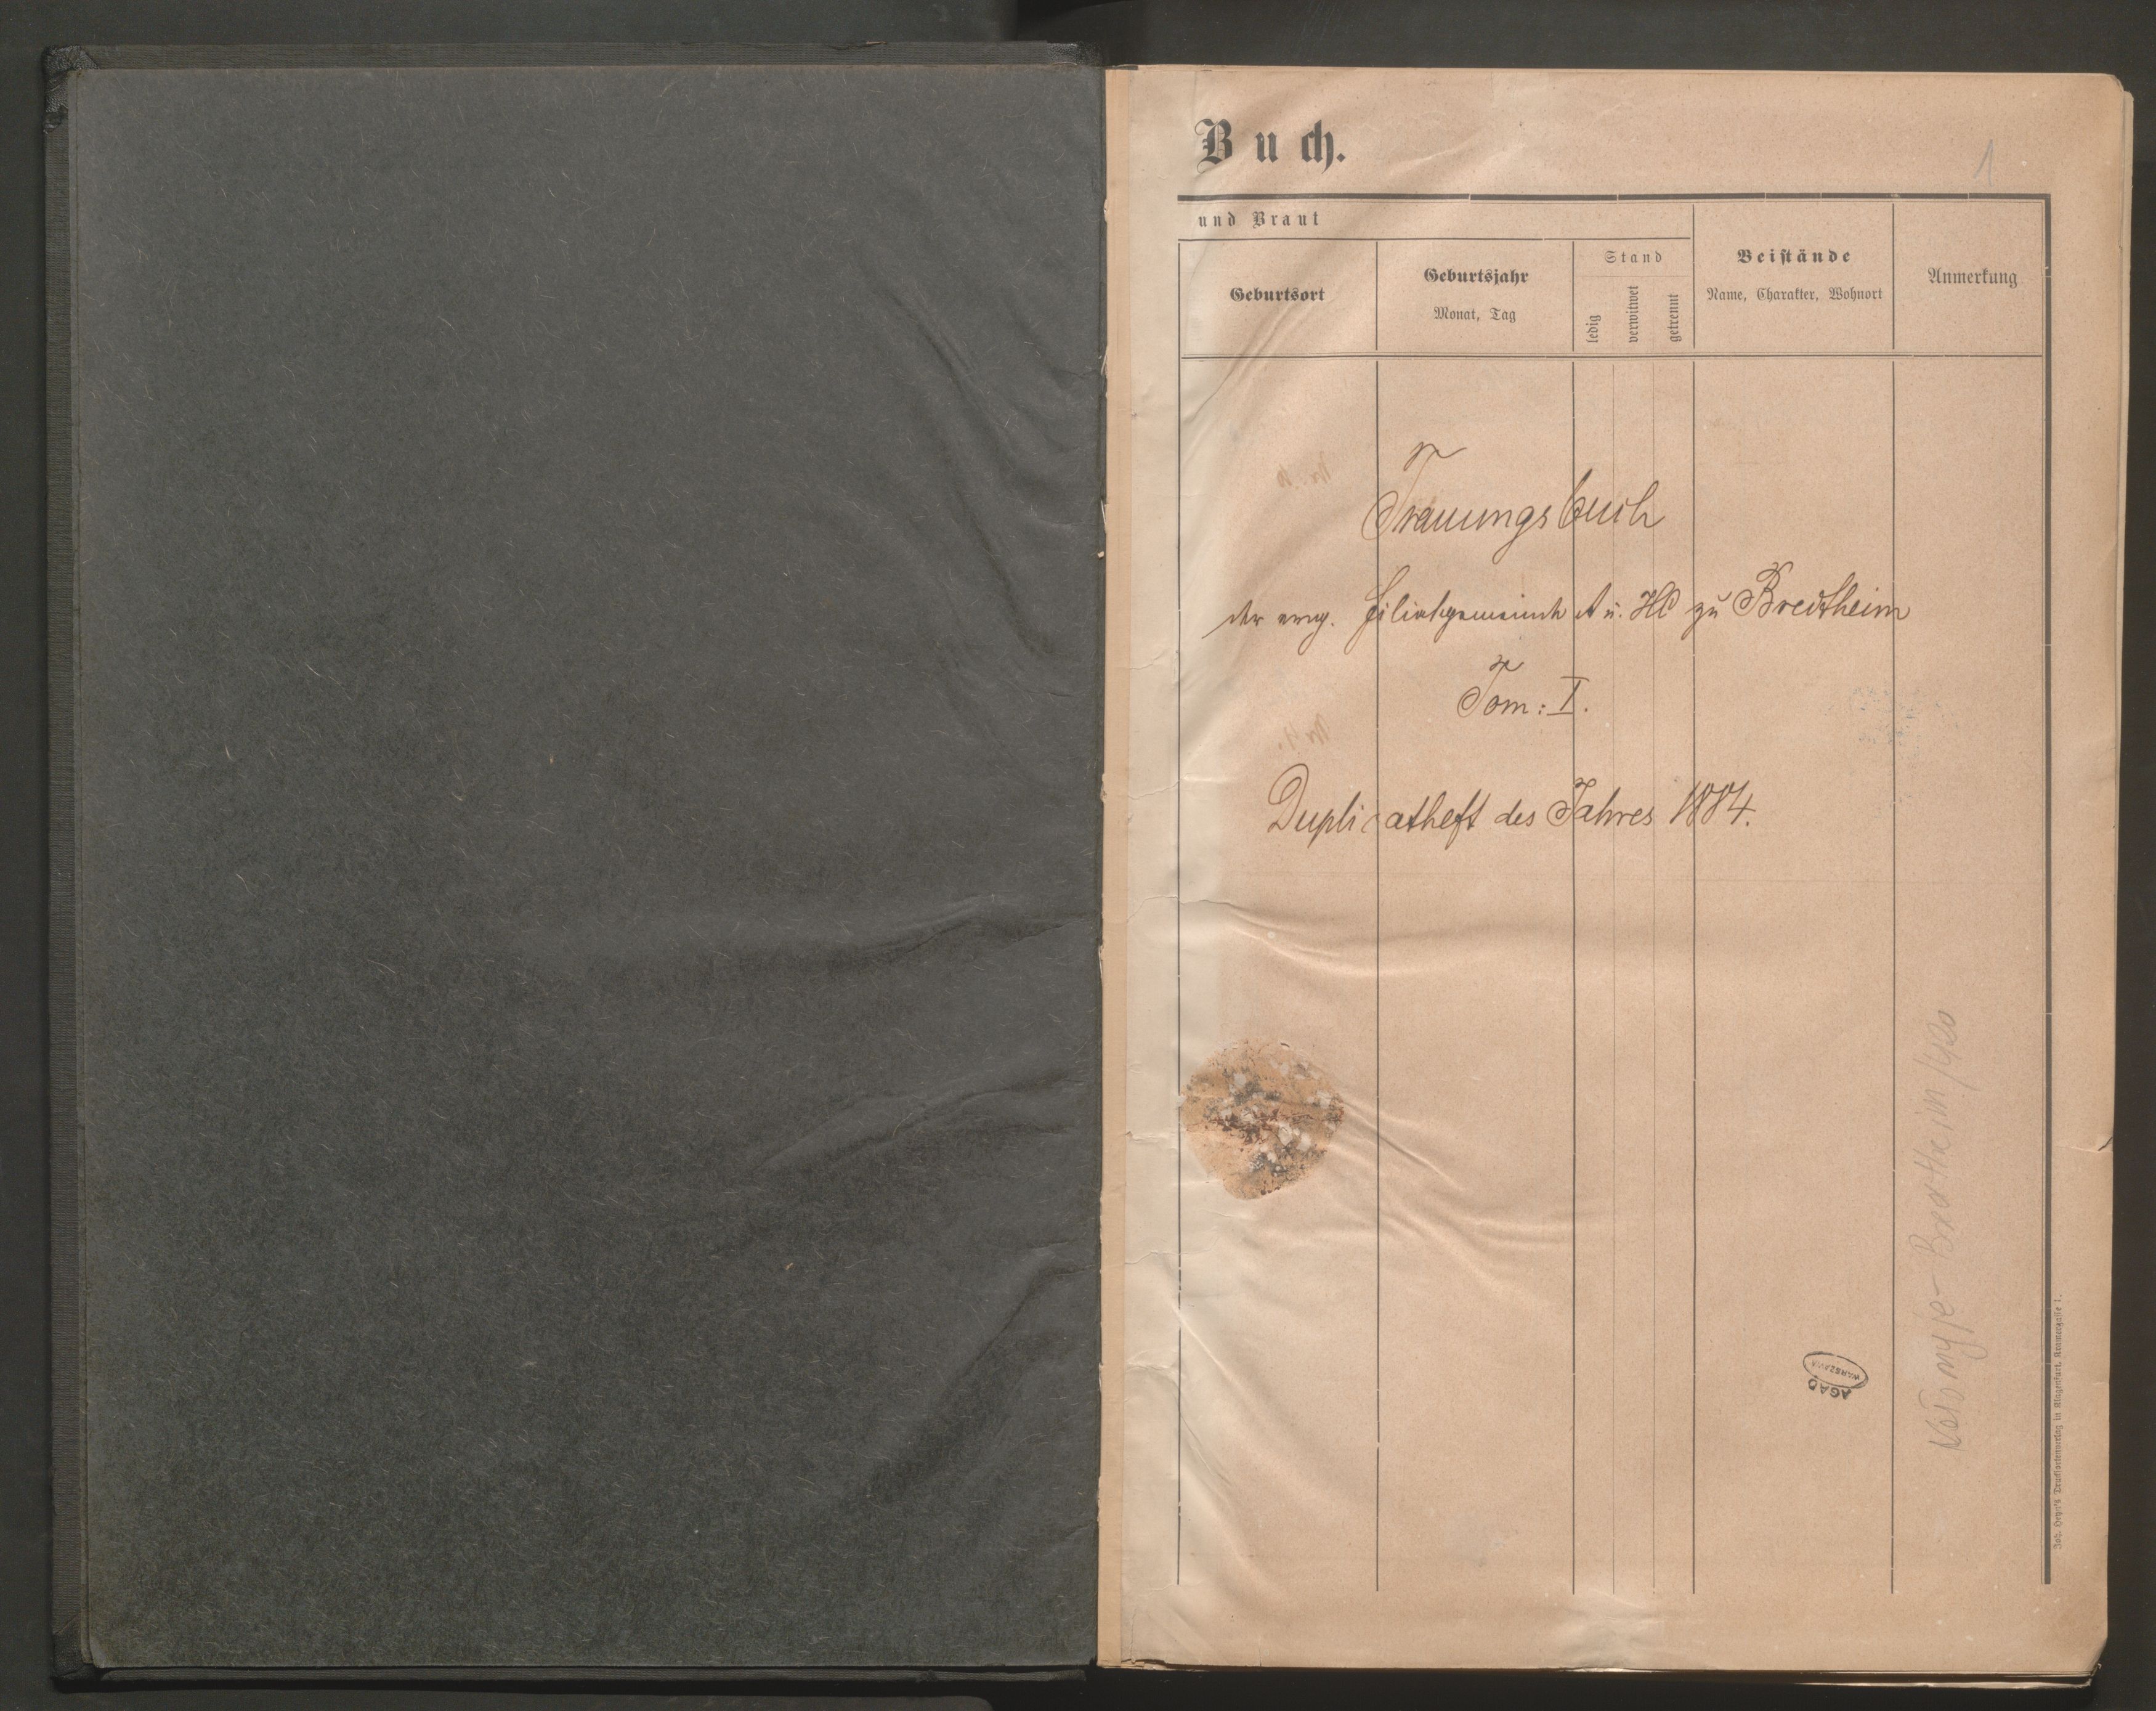 Buch.
1
und Braut
Geburtsort
Geburtsjahr
Monat, Tag
Stand
ledig
verwitwet
getrennt
Beistände
Name, Charakter, Wohnort
Anmerkung
Trauungsbuch
der evng. Filialgemeinde A u. HC zu Bredtheim
Tom: I.
Duplicatheft des Jahres 1884.
Bredtheim
AGAD
WARSZAWA
Joh. Heyn's Drucksortenverlag in Klagenfurt,